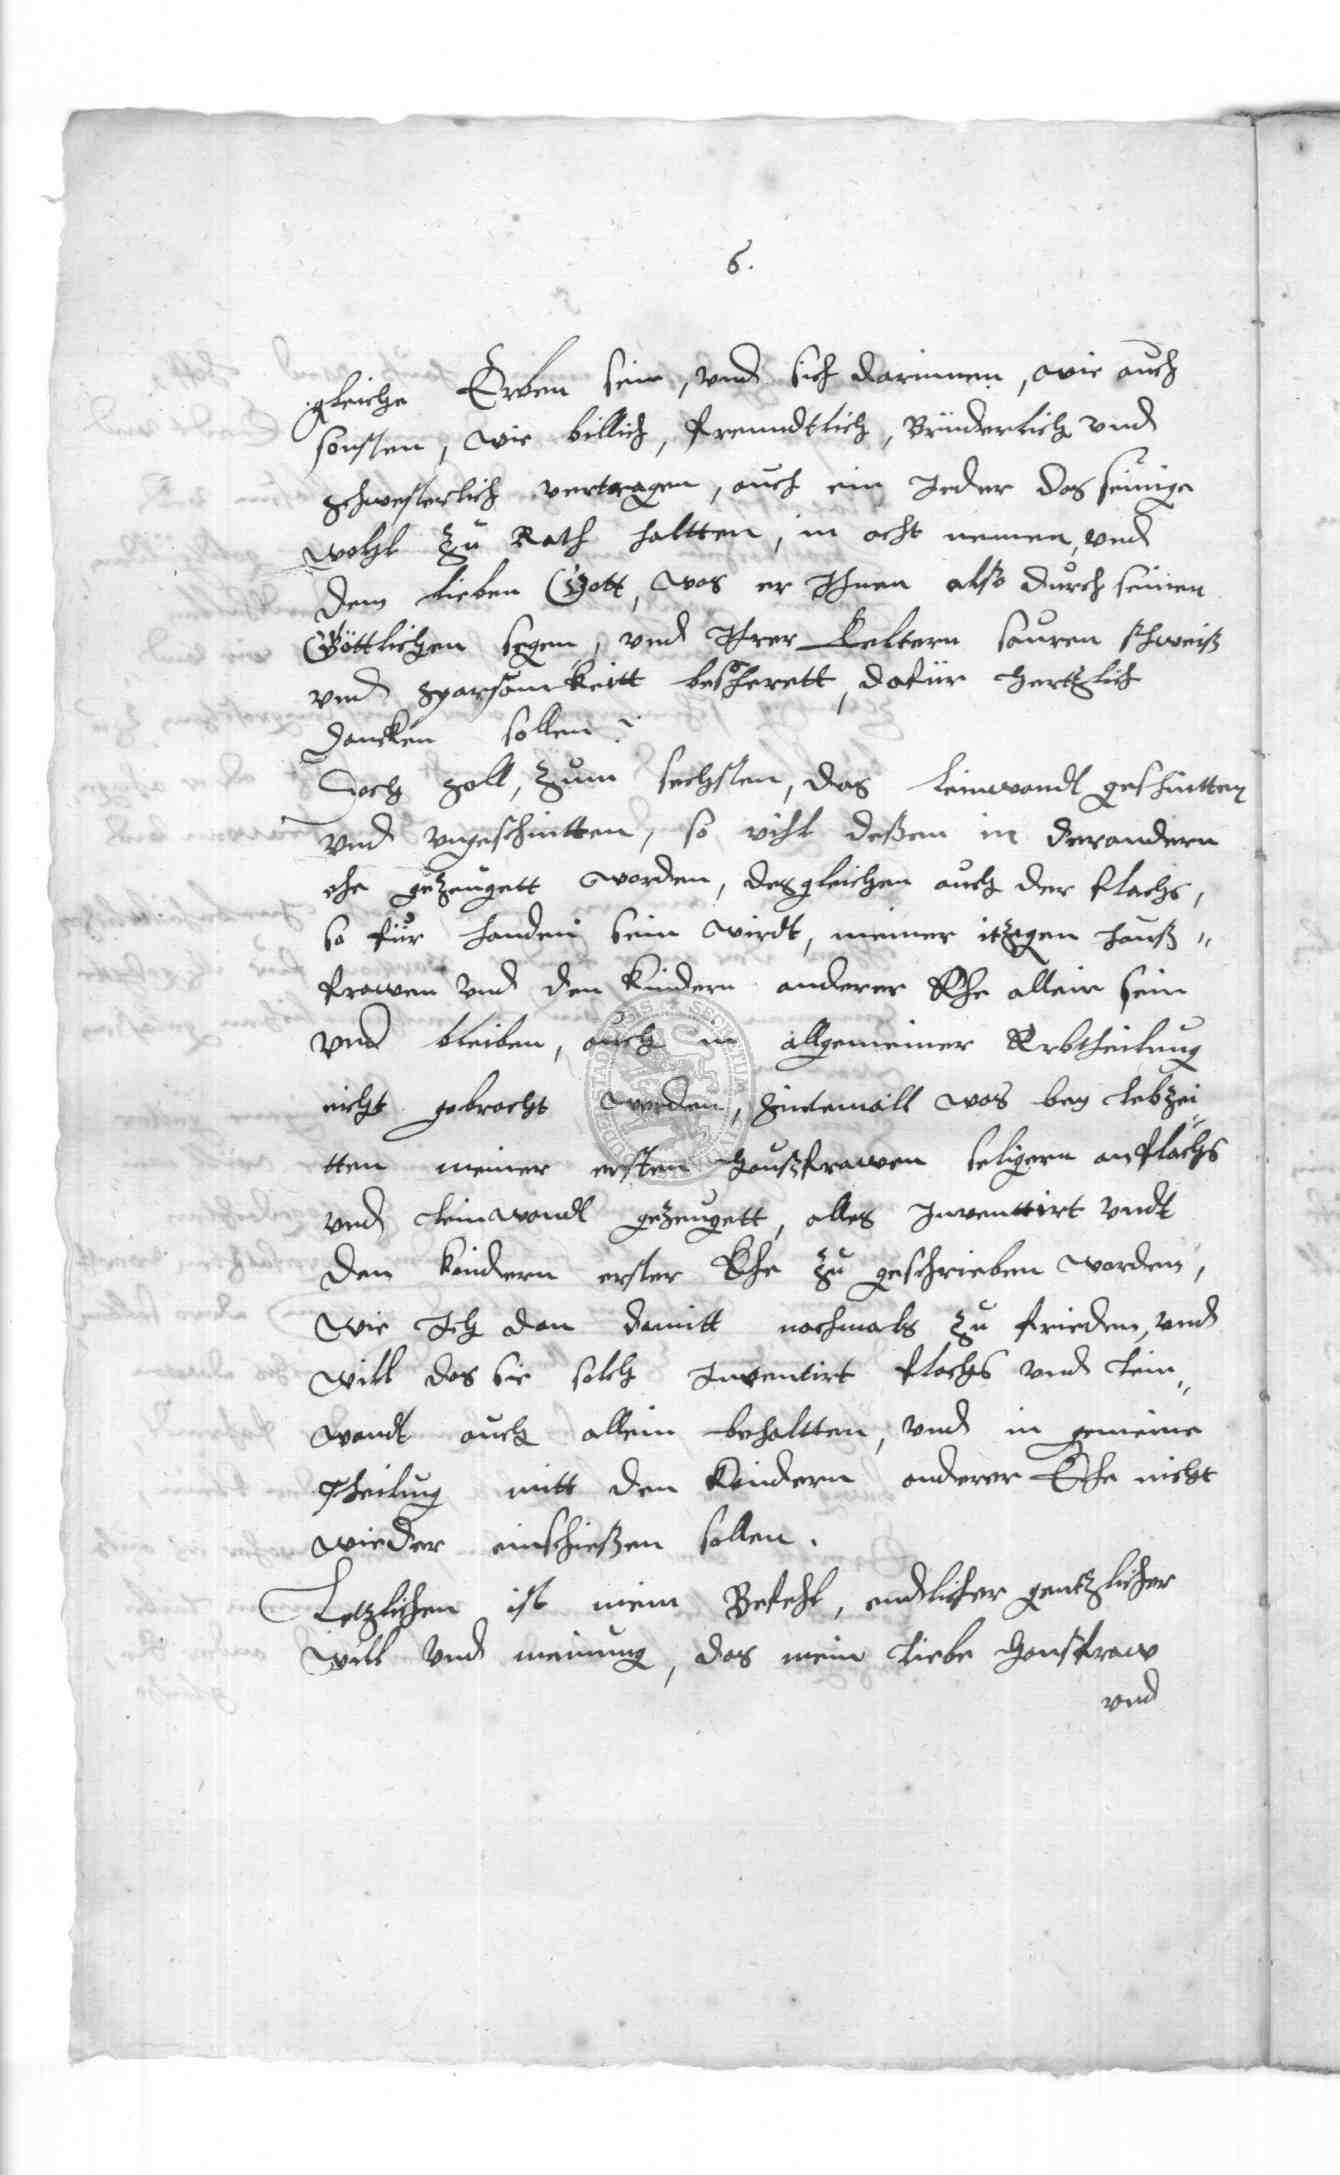 6.
gleiche Erben sein, vnd sich darinnen, wie auch
sonsten, wie billich, freundtlich, Brüderlich vnd
schwesterlich vertragen, auch ein Jeder das seinige
wohl zu Rath haltten, in acht nemen, vnd
dem lieben Gott, was er Ihnen also durch seinen
Göttlichen segen, vnd Ihrer Eeltern sauren schweiß
vnd sparsamkeitt bescherett, dafür hertzlich
dancken sollen.
Doch soll, zum sechsten, das leinwandt geschnitten
vnd vngeschnitten, so vihl deßen in der andern
ehe gezeugett worden, desgleichen auch der flachs,
so für handen sein wirdt, meiner itzigen hauß„
frawen vnd den Kindern anderer Ehe allein sein
vnd bleiben, auch in allgemeiner Erbtheilung
nicht gebracht werden, sintemall was bey lebzei„
tten meiner ersten haußfrawen seligern an flachs
vnd leinwandt gezeugett, alles Inventirt vndt
den kindern erster Ehe zu geschrieben worden,
wie Ich dan damitt nochmals zu frieden, vnd
will das sie solch Inventirt flachs vnd lein„
wandt auch allein behaltten, vnd in gemeine
Theilung mitt den Kindern anderer Ehe nicht
wieder einschießen sollen.
Letzlichen ist mein Befehl, endlicher gentzlicher
will vnd meinung, das mein liebe haußfraw
vnd